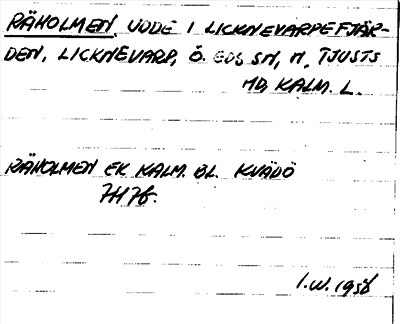 RÄHOLMEN, UDDE I LICKNEVARPEFJÄR-
DEN, LICKNEVARP, Ö. EDS SN, N. TJUSTS
HD, KALM. L.
RÄHOLMEN EK KALM. BL. KVÄDÖ
7H7f.
I.W. 1958